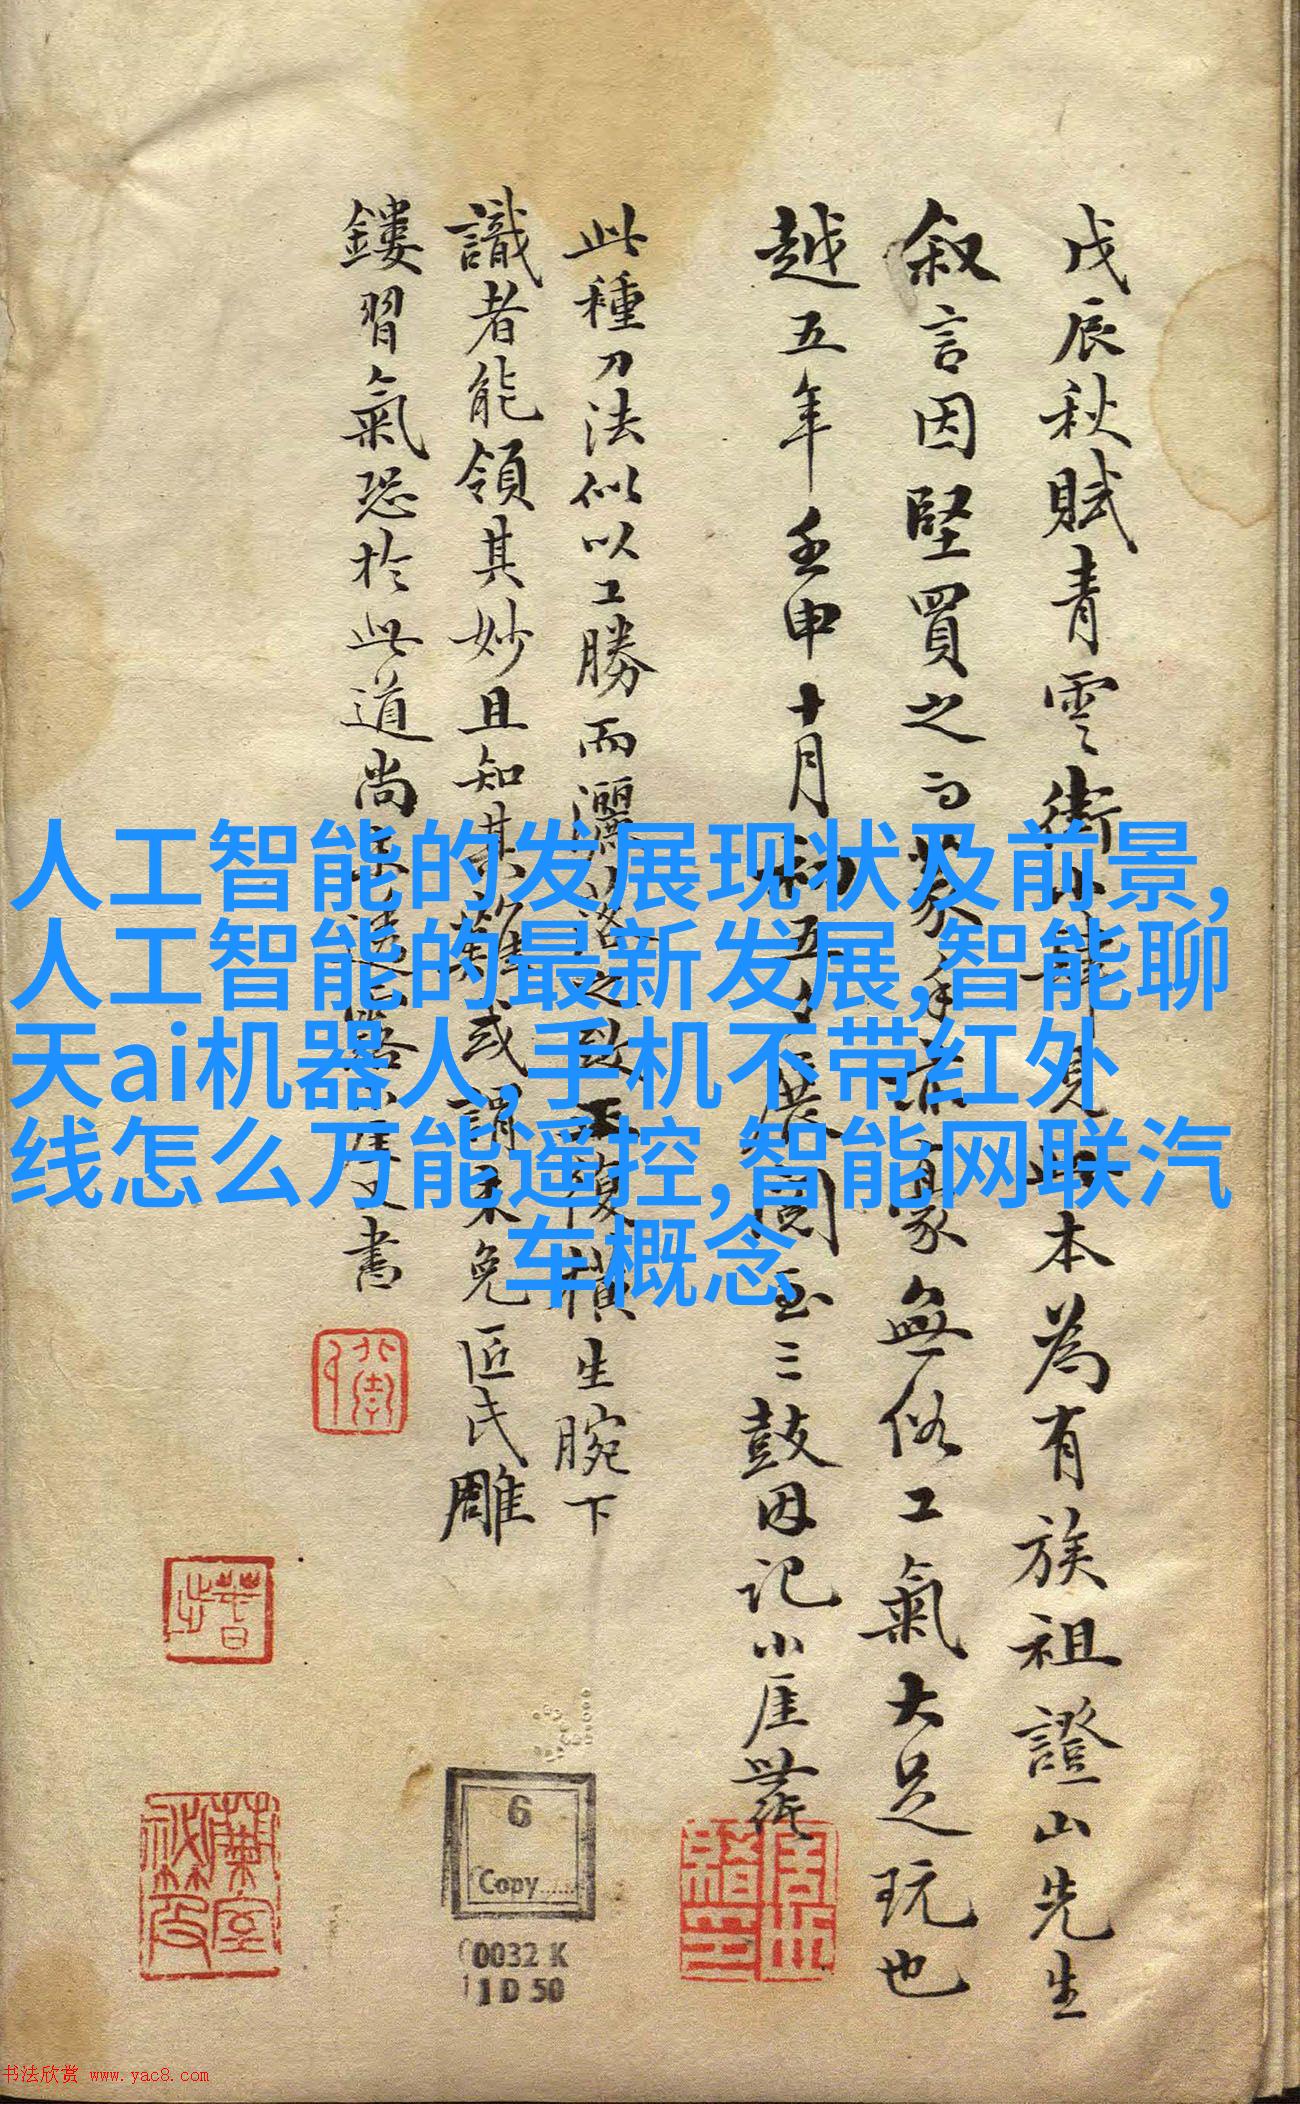 人工智能的发展现状及前景,
人工智能的最新发展,智能聊
天ai机器人,手机不带红外
线怎么万能遥控,智能网联汽
车概念
戊辰秋賦青雲街小肆見此本為有族祖證山先生
叙言因堅買之而篆手沽豪無俗工氣大足玩也
越五年壬申十月初五夕展閱至三鼓因記小厓
此種刀法似以工勝而灑落之致复橫生腕下
識者能領其妙且知其難或謂未免匠氏雕
鏤習氣恐於此道尚書
6
Copy
0032 K
1 D 50
书法欣赏 www.yac8.com